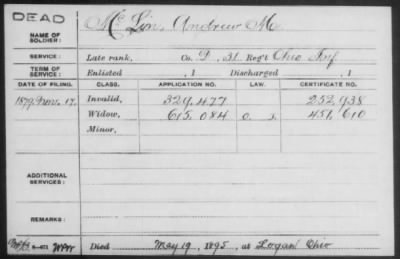 DEAD
NAME OF SOLDIER: McLin, Andrew Mc.
SERVICE: Late rank, Co. D, 31 Reg't Ohio Inf
TERM OF SERVICE: Enlisted , 1 Discharged , 1
DATE OF FILING. CLASS. APPLICATION NO. LAW. CERTIFICATE NO.
1879, Nov. 17. Invalid, 329.477 252.938
Widow, 615.084 451.610
Minor,
ADDITIONAL SERVICES:
REMARKS:
Died May 19, 1895, at Logan Ohio